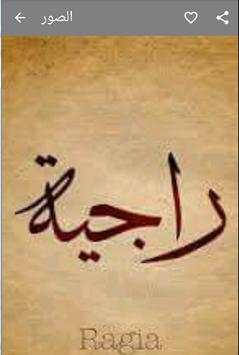 الصور
راجية
Ragia